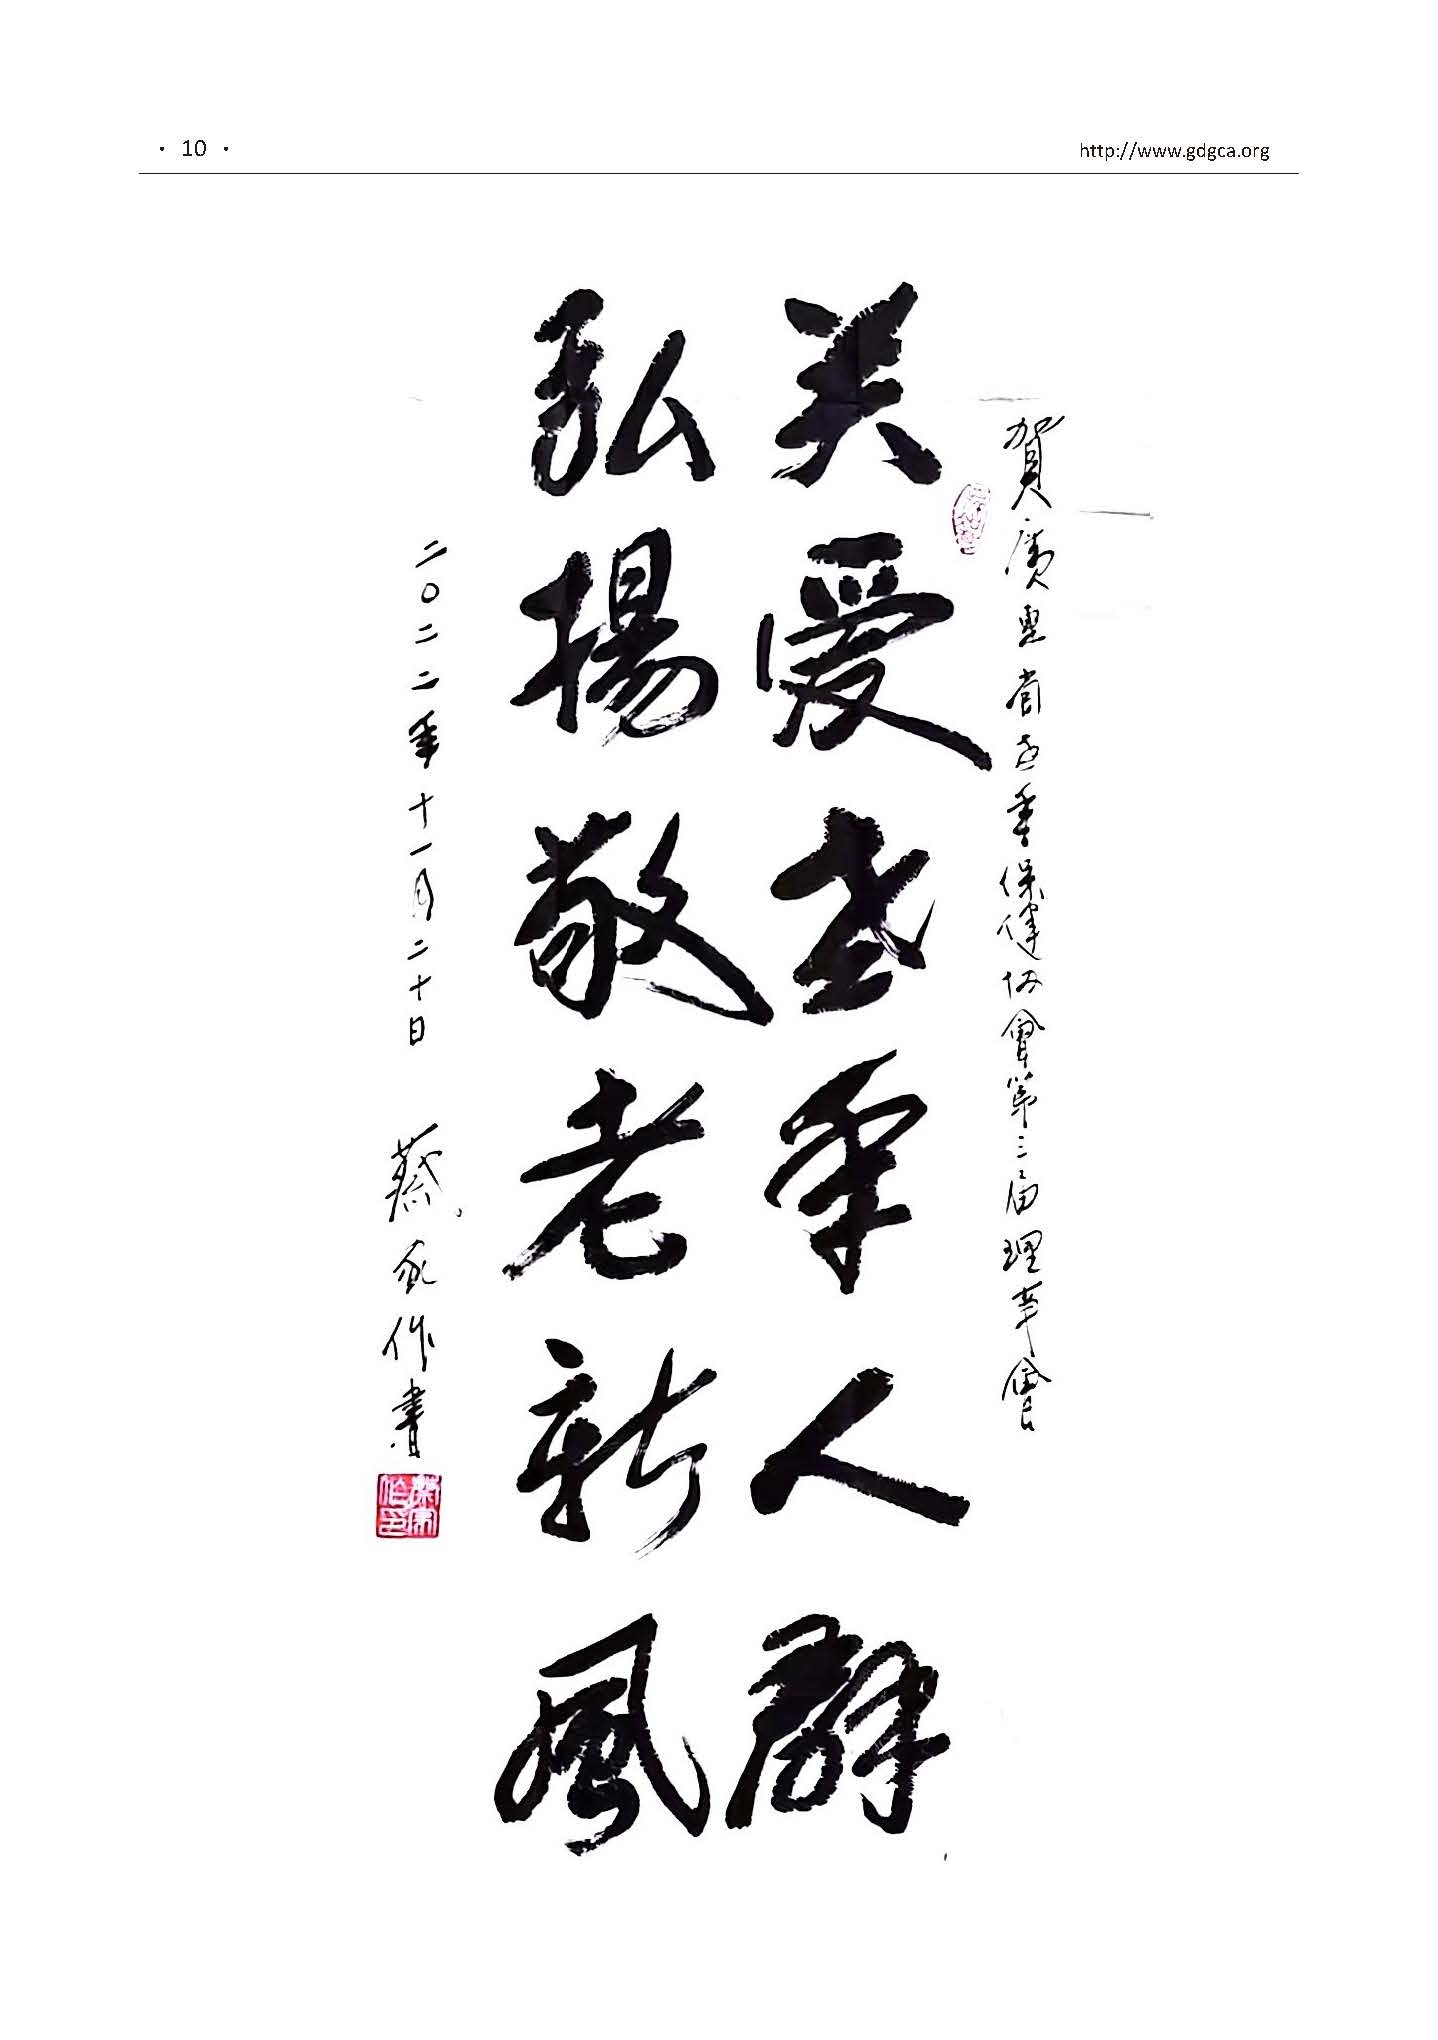 · 10 ·
http://www.gdgca.org
賀廣東省老年保健协會第三届理事會
关爱老年人群
弘揚敬老新風
二〇二二年十一月二十日
蔡家作書